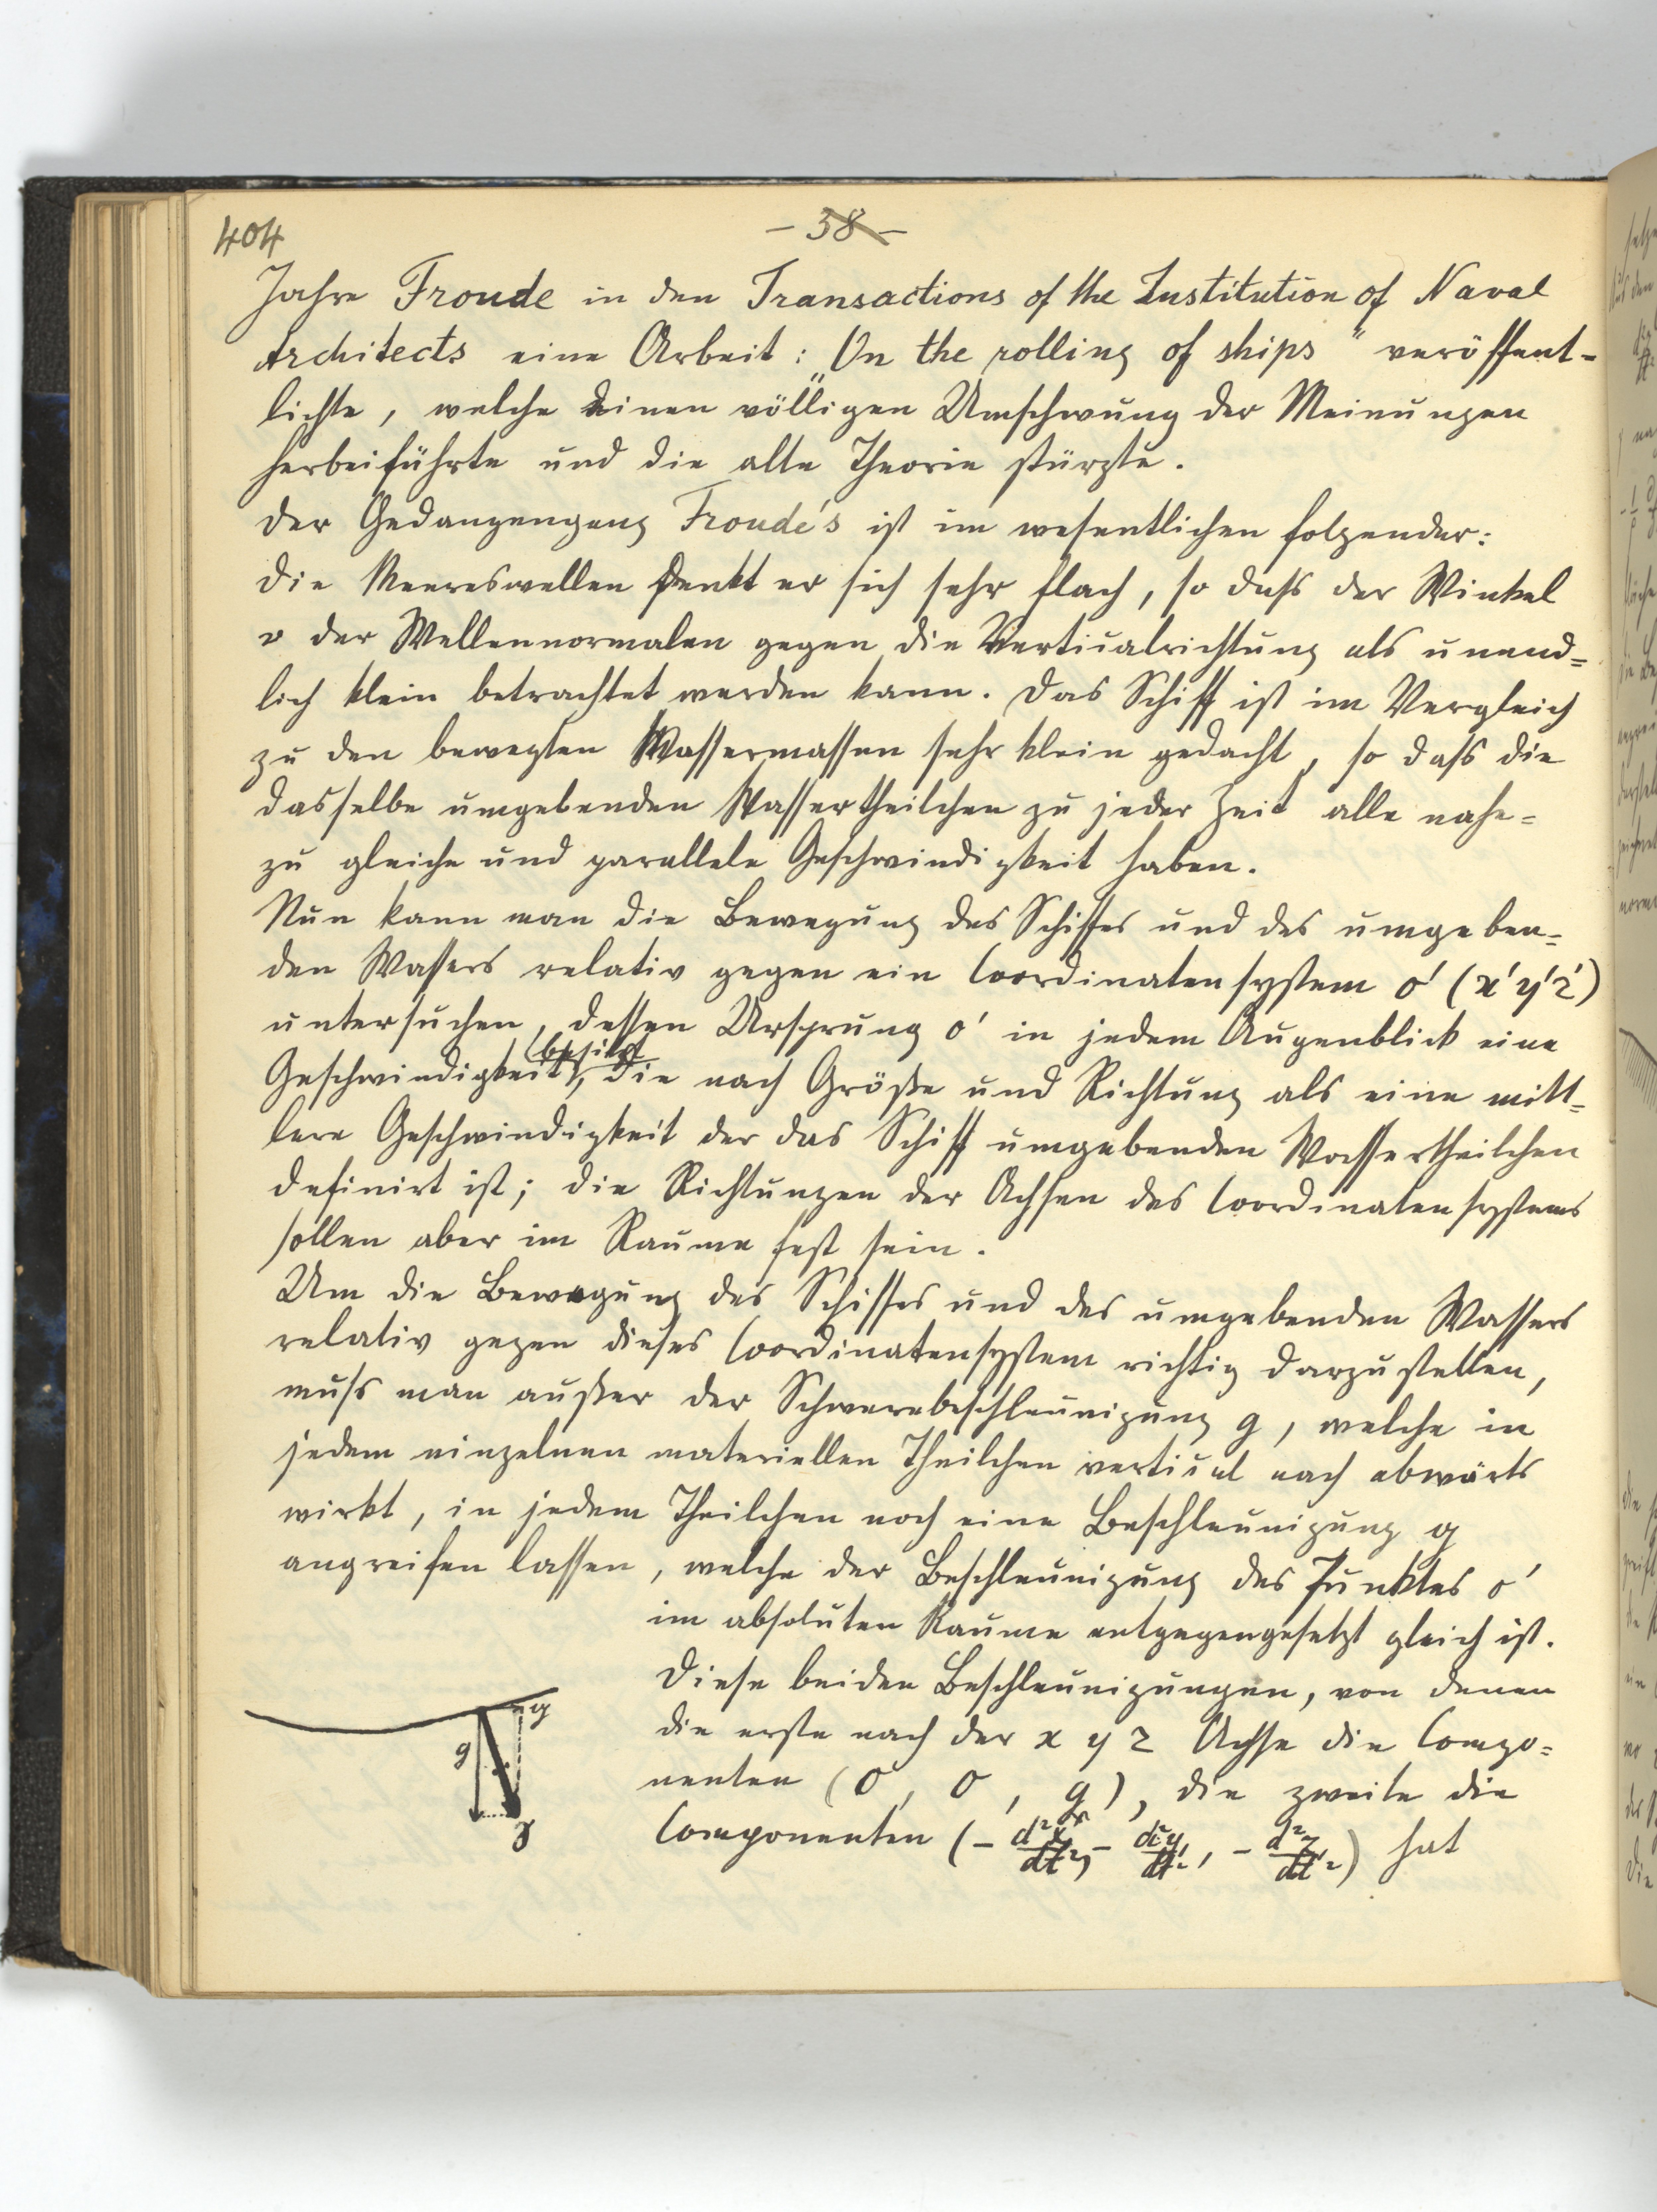 404
- 38 -
Jahre Froude in den Transactions of the Institution of Naval
Architects eine Arbeit: „On the rolling of ships" veröffent-
lichte, welche einen völligen Umschwung der Meinungen
herbeiführte und die alte Theorie stürzte.
Der Gedangengang Froude's ist im wesentlichen folgender:
Die Meereswellen denkt er sich sehr flach, so daß der Winkel
v der Wellennormalen gegen die Verticalrichtung als unend=
lich klein betrachtet werden kann. Das Schiff ist im Vergleich
zu den bewegten Wassermassen sehr klein gedacht, so daß die
dasselbe umgebenden Wassertheilchen zu jeder Zeit alle nahe=
zu gleiche und parallele Geschwindigkeit haben.
Nun kann man die Bewegung des Schiffes und des umgeben=
den Wassers relativ gegen ein Coordinatensystem o' (x'y'z')
untersuchen, dessen Ursprung o' in jedem Augenblick eine
(besitzt
Geschwindigkeit, die nach Größe und Richtung als eine mitt=
lere Geschwindigkeit der das Schiff umgebenden Wassertheilchen
definirt ist; die Richtungen der Achsen des Coordinatensystems
sollen aber im Raume fest sein.
Um die Bewegung des Schiffes und des umgebenden Wassers
relativ gegen dieses Coordinatensystem richtig darzustellen,
muß man außer der Schwerebeschleunigung g, welche in
jedem einzelnen materiellen Theilchen vertical nach abwärts
wirkt, in jedem Theilchen noch eine Beschleunigung
angreifen lassen, welche der Beschleunigung des Punktes o'
im absoluten Raume entgegengesetzt gleich ist.
Diese beiden Beschleunigungen, von denen
die erste nach der x y z Achse die Compo=
nenten (0, 0, g), die zweite die
Componenten (- d²x/dt², - d²y/dt², - d²z/dt²) hat
g